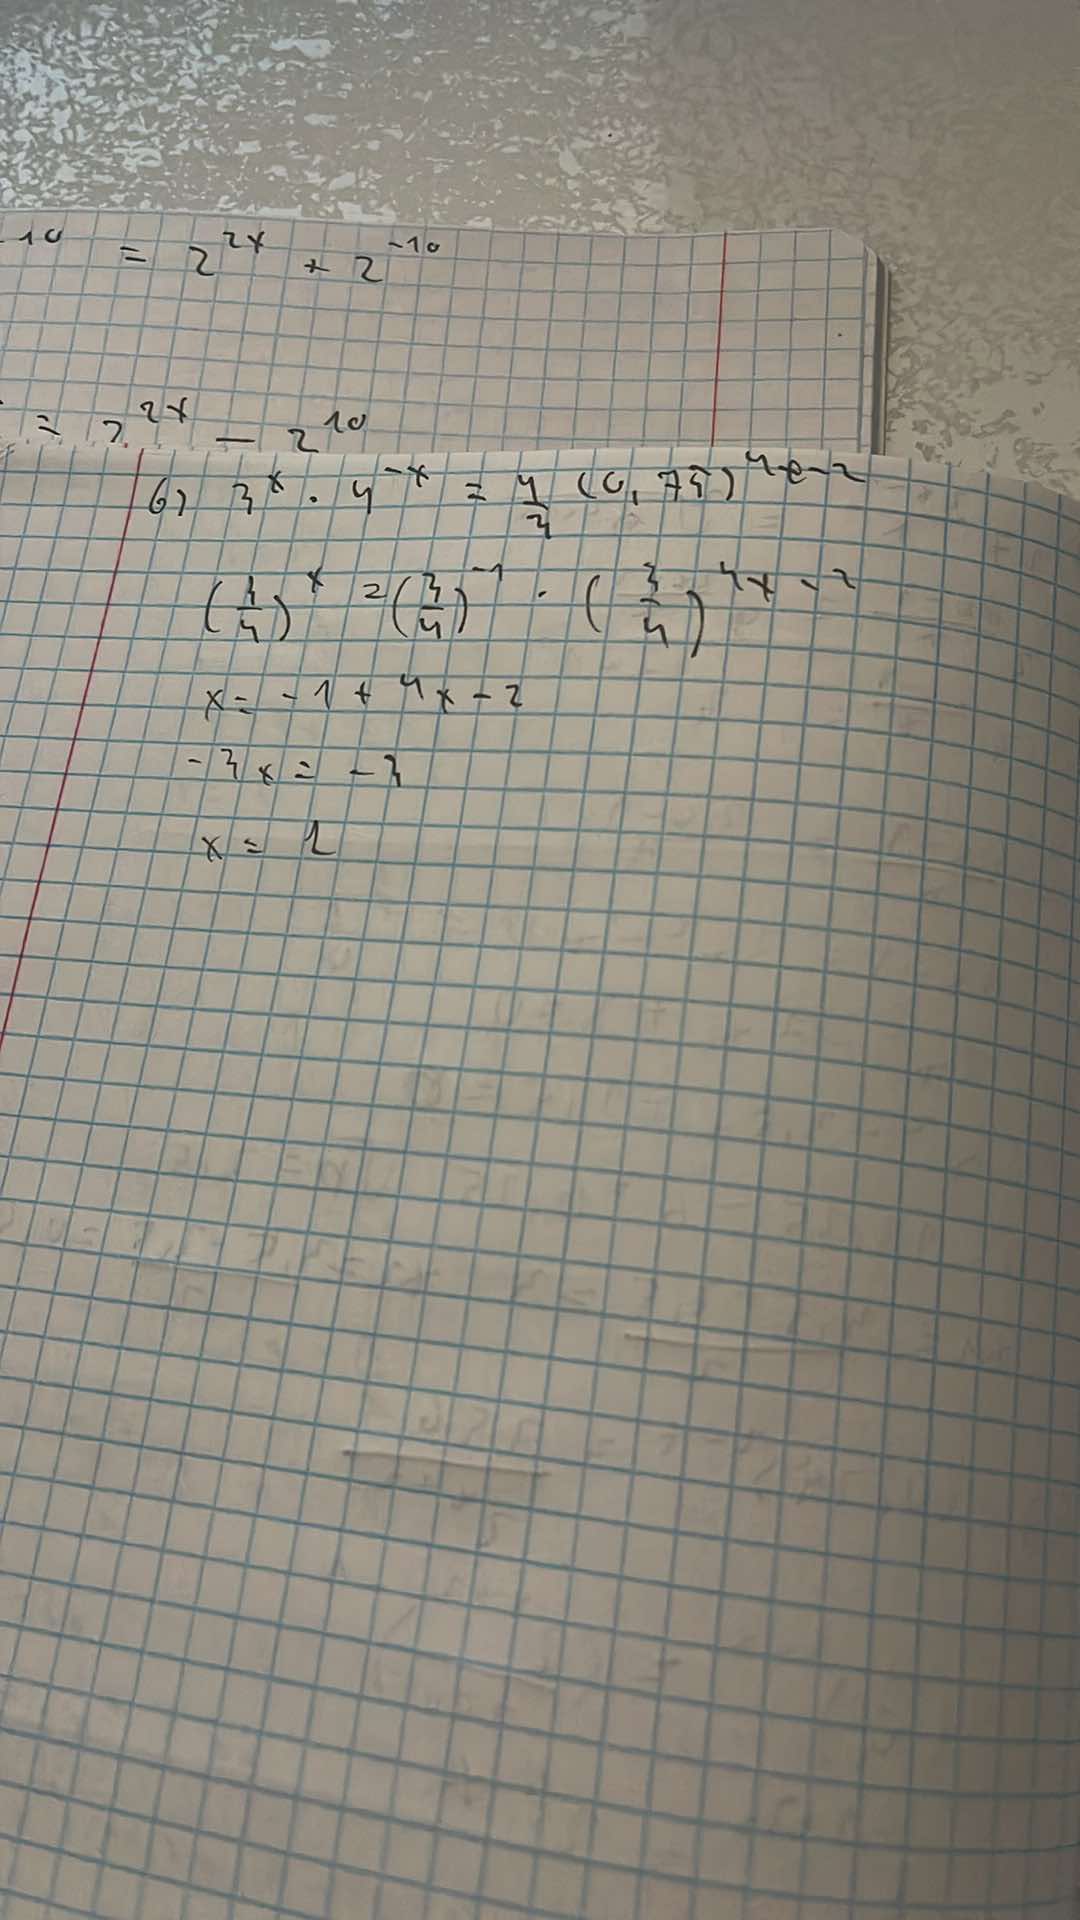 -10 = 2^{2x} + 2^{-10}
= 2^{2x} - 2^{10}
б) 3^x · 4^{-x} = \frac{4}{3} (0,75)^{4x-2}
(\frac{3}{4})^x = (\frac{3}{4})^{-1} · (\frac{3}{4})^{4x-2}
x = -1 + 4x - 2
-3x = -3
x = 1